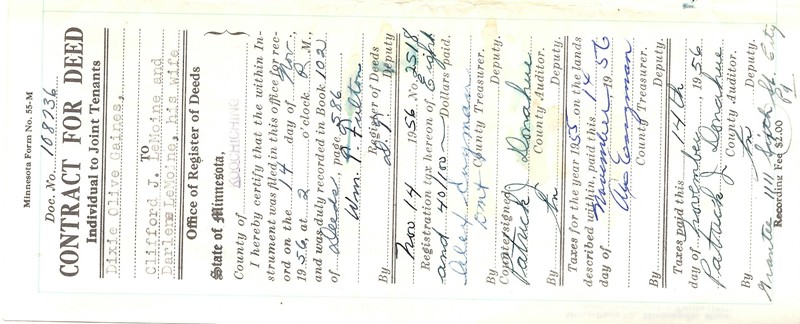 Minnesota Form No. 55-M
Doc. No. 108736
CONTRACT FOR DEED
Individual to Joint Tenants
Dixie Olive Gaines,
TO
Clifford J. LeMoine and
Darlene LeMoine, his wife
Office of Register of Deeds
State of Minnesota,
County of KOOCHICHING
I hereby certify that the within In-
strument was filed in this office for rec-
ord on the 14 day of Nov.,
1956, at 2 o'clock P. M.,
and was duly recorded in Book 102
of Deeds, page 586
Wm. P. Fulton
Register of Deeds
By Deputy
Nov 14 1956 No. 2518
Registration tax hereon of Eight
and 40/100 Dollars paid.
County Treasurer.
By Deputy
Countersigned
Patrick J Donahue
County Auditor.
By Deputy
Taxes for the year 1955 on the lands
described within, paid this 14
day of November 1956
County Treasurer.
By Deputy
Taxes paid this 14th
day of November, 1956
Patrick J Donahue
County Auditor.
By Deputy
Grantee 1111
Recording Fee $2.00